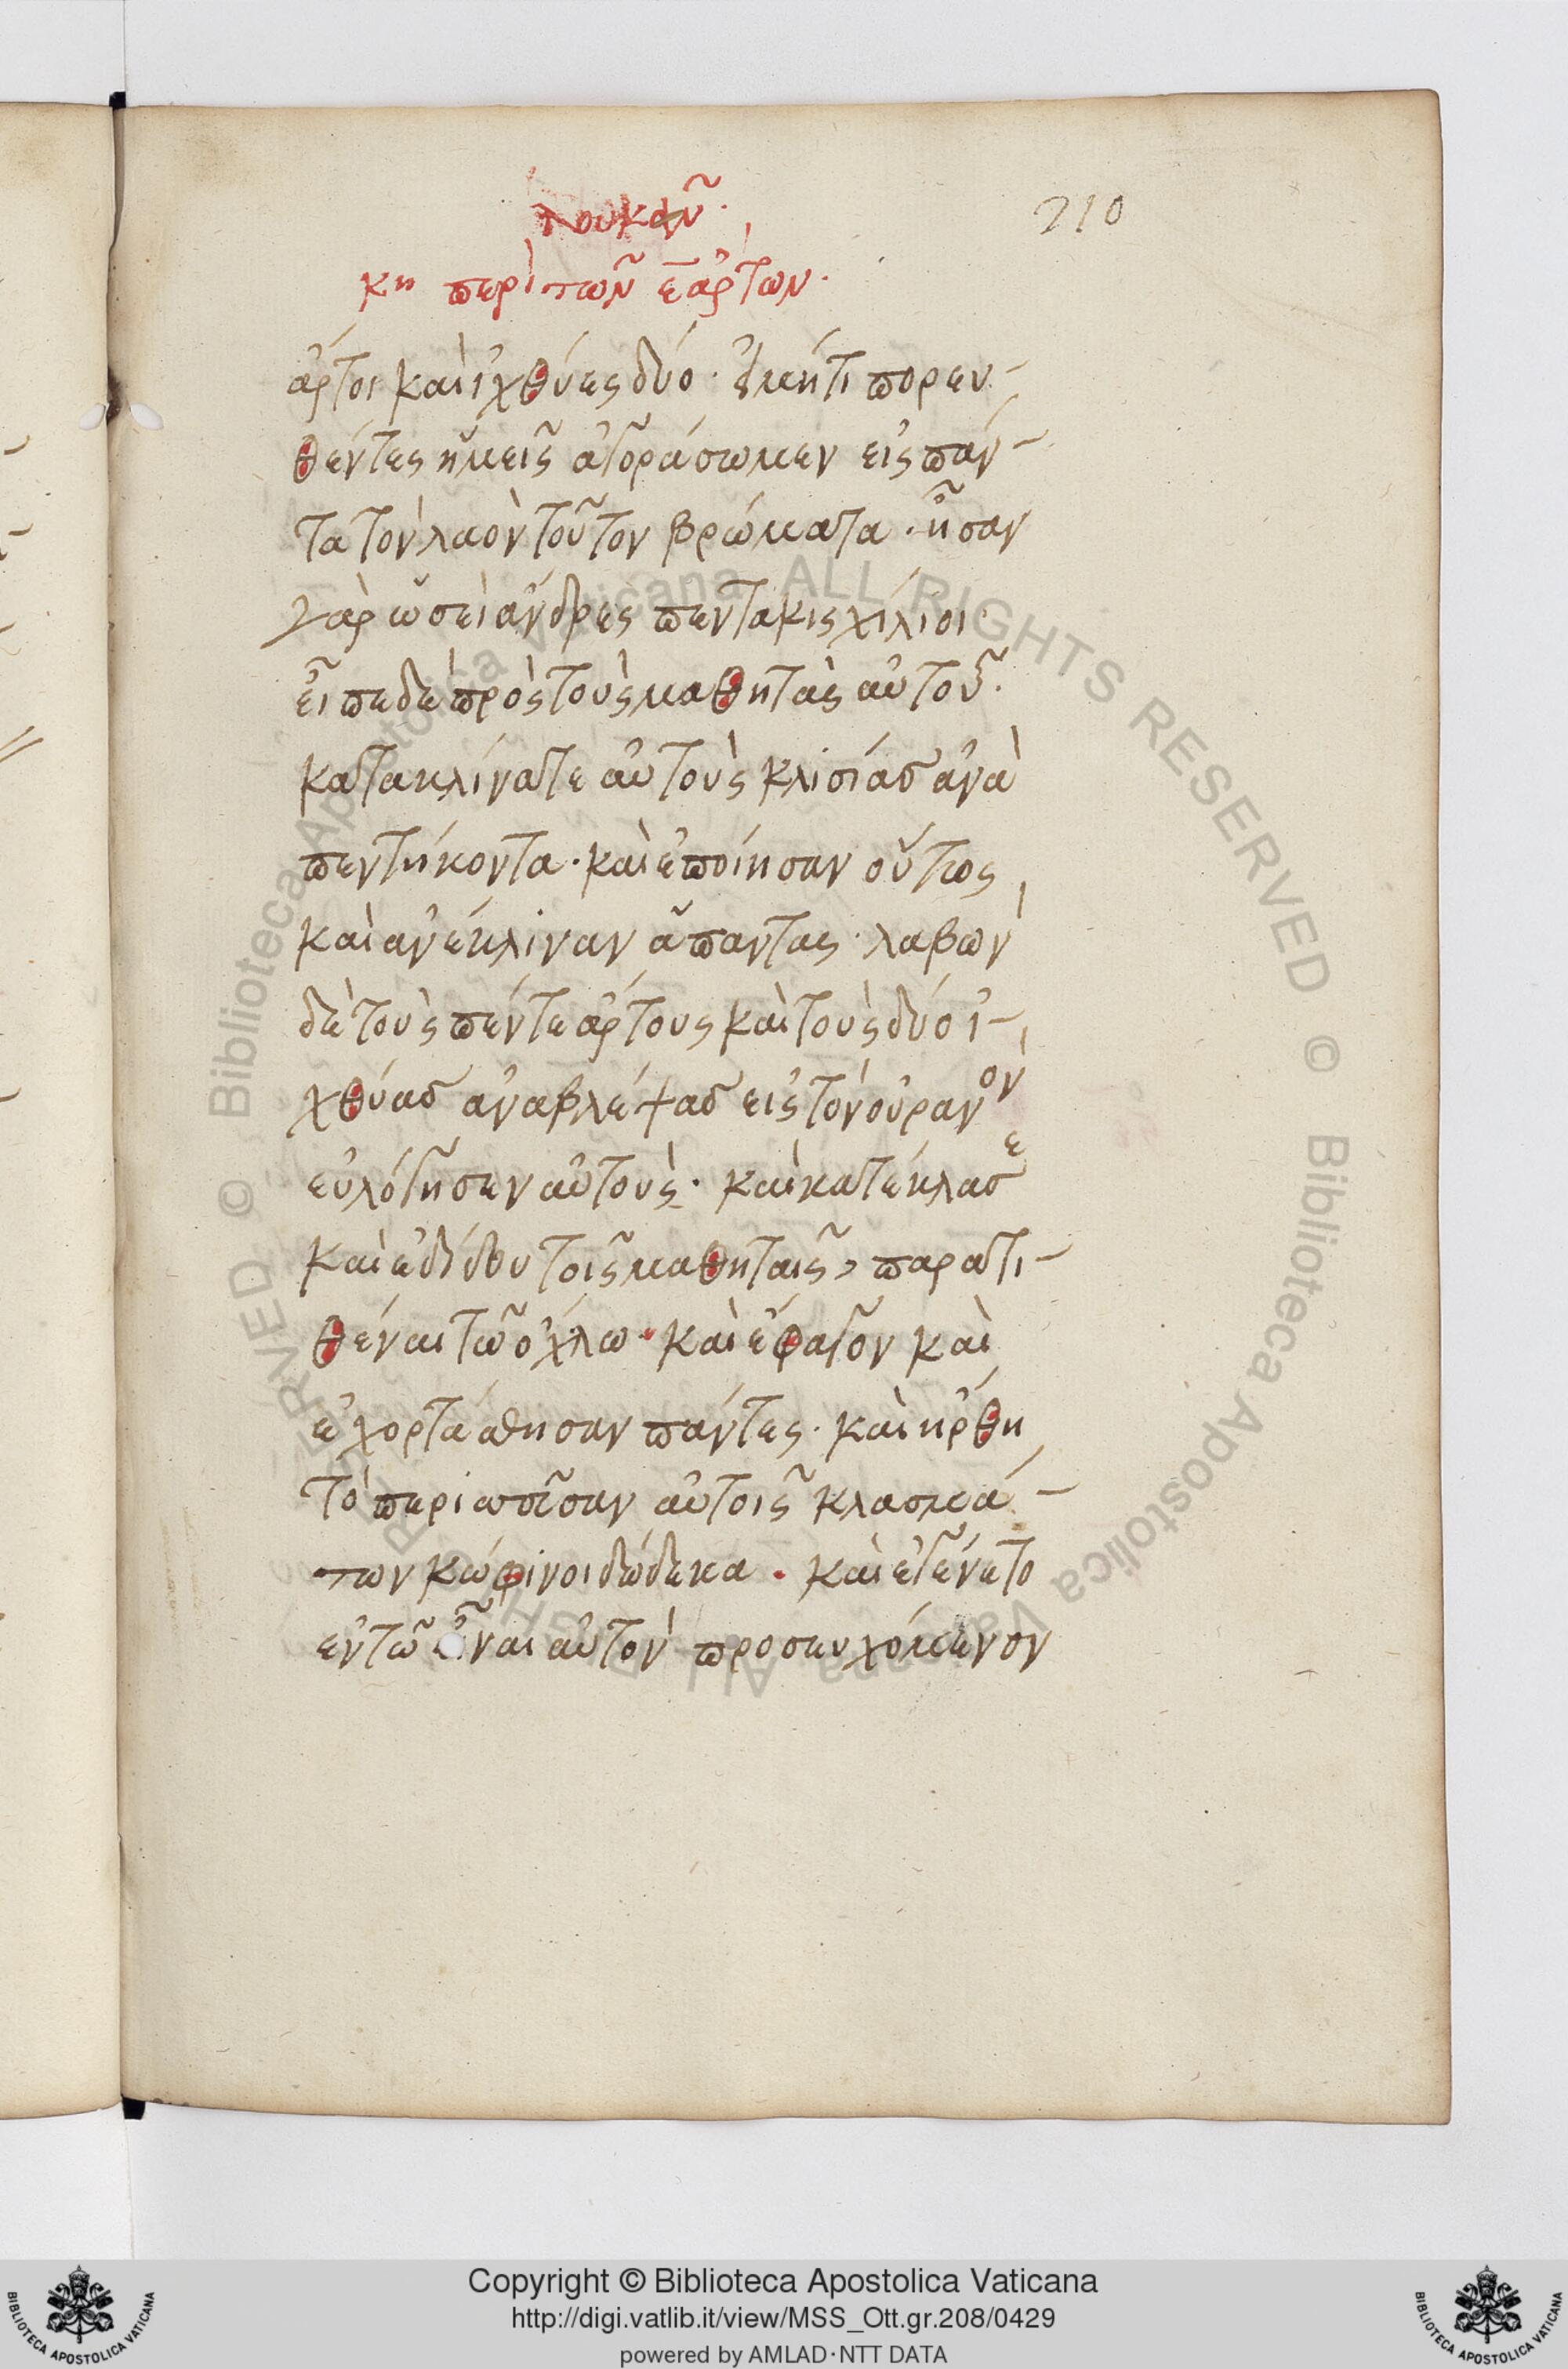 λουκᾶν·
210
κη περὶ τῶν ε̄ ἄρτων·
ἄρτοι καὶ ἰχθύες δύο· εἰ μήτι πορευ-
θέντες ἡμεῖς ἀγοράσωμεν εἰς πάν-
τα τὸν λαὸν τοῦτον βρώματα· ἦσαν
γὰρ ὡσεὶ ἄνδρες πεντακισχίλιοι·
εἶπε δὲ πρὸς τοὺς μαθητὰς αὐτοῦ·
κατακλίνατε αὐτοὺς κλισίας ἀνὰ
πεντήκοντα· καὶ ἐποίησαν οὕτως
καὶ ἀνέκλιναν ἅπαντας· λαβὼν
δὲ τοὺς πέντε ἄρτους καὶ τοὺς δύο ἰ-
χθύας ἀναβλέψας εἰς τὸν οὐρανὸν
εὐλόγησεν αὐτοὺς· καὶ κατέκλασε
καὶ ἐδίδου τοῖς μαθηταῖς, παρατι-
θέναι τῶ ὄχλω· καὶ ἔφαγον καὶ
ἐχορτάσθησαν πάντες· καὶ ἤρθη
τὸ περισσεῦσαν αὐτοῖς κλασμά-
των κώφινοι δώδεκα· καὶ ἐγένετο
ἐν τῶ εἶναι αὐτὸν προσευχόμενον
© Biblioteca Apostolica Vaticana ALL RIGHTS RESERVED
© Biblioteca Apostolica Vaticana ALL RIGHTS RESERVED
BIBLIOTECA APOSTOLICA VATICANA
Copyright © Biblioteca Apostolica Vaticana
http://digi.vatlib.it/view/MSS_Ott.gr.208/0429
powered by AMLAD·NTT DATA
BIBLIOTECA APOSTOLICA VATICANA